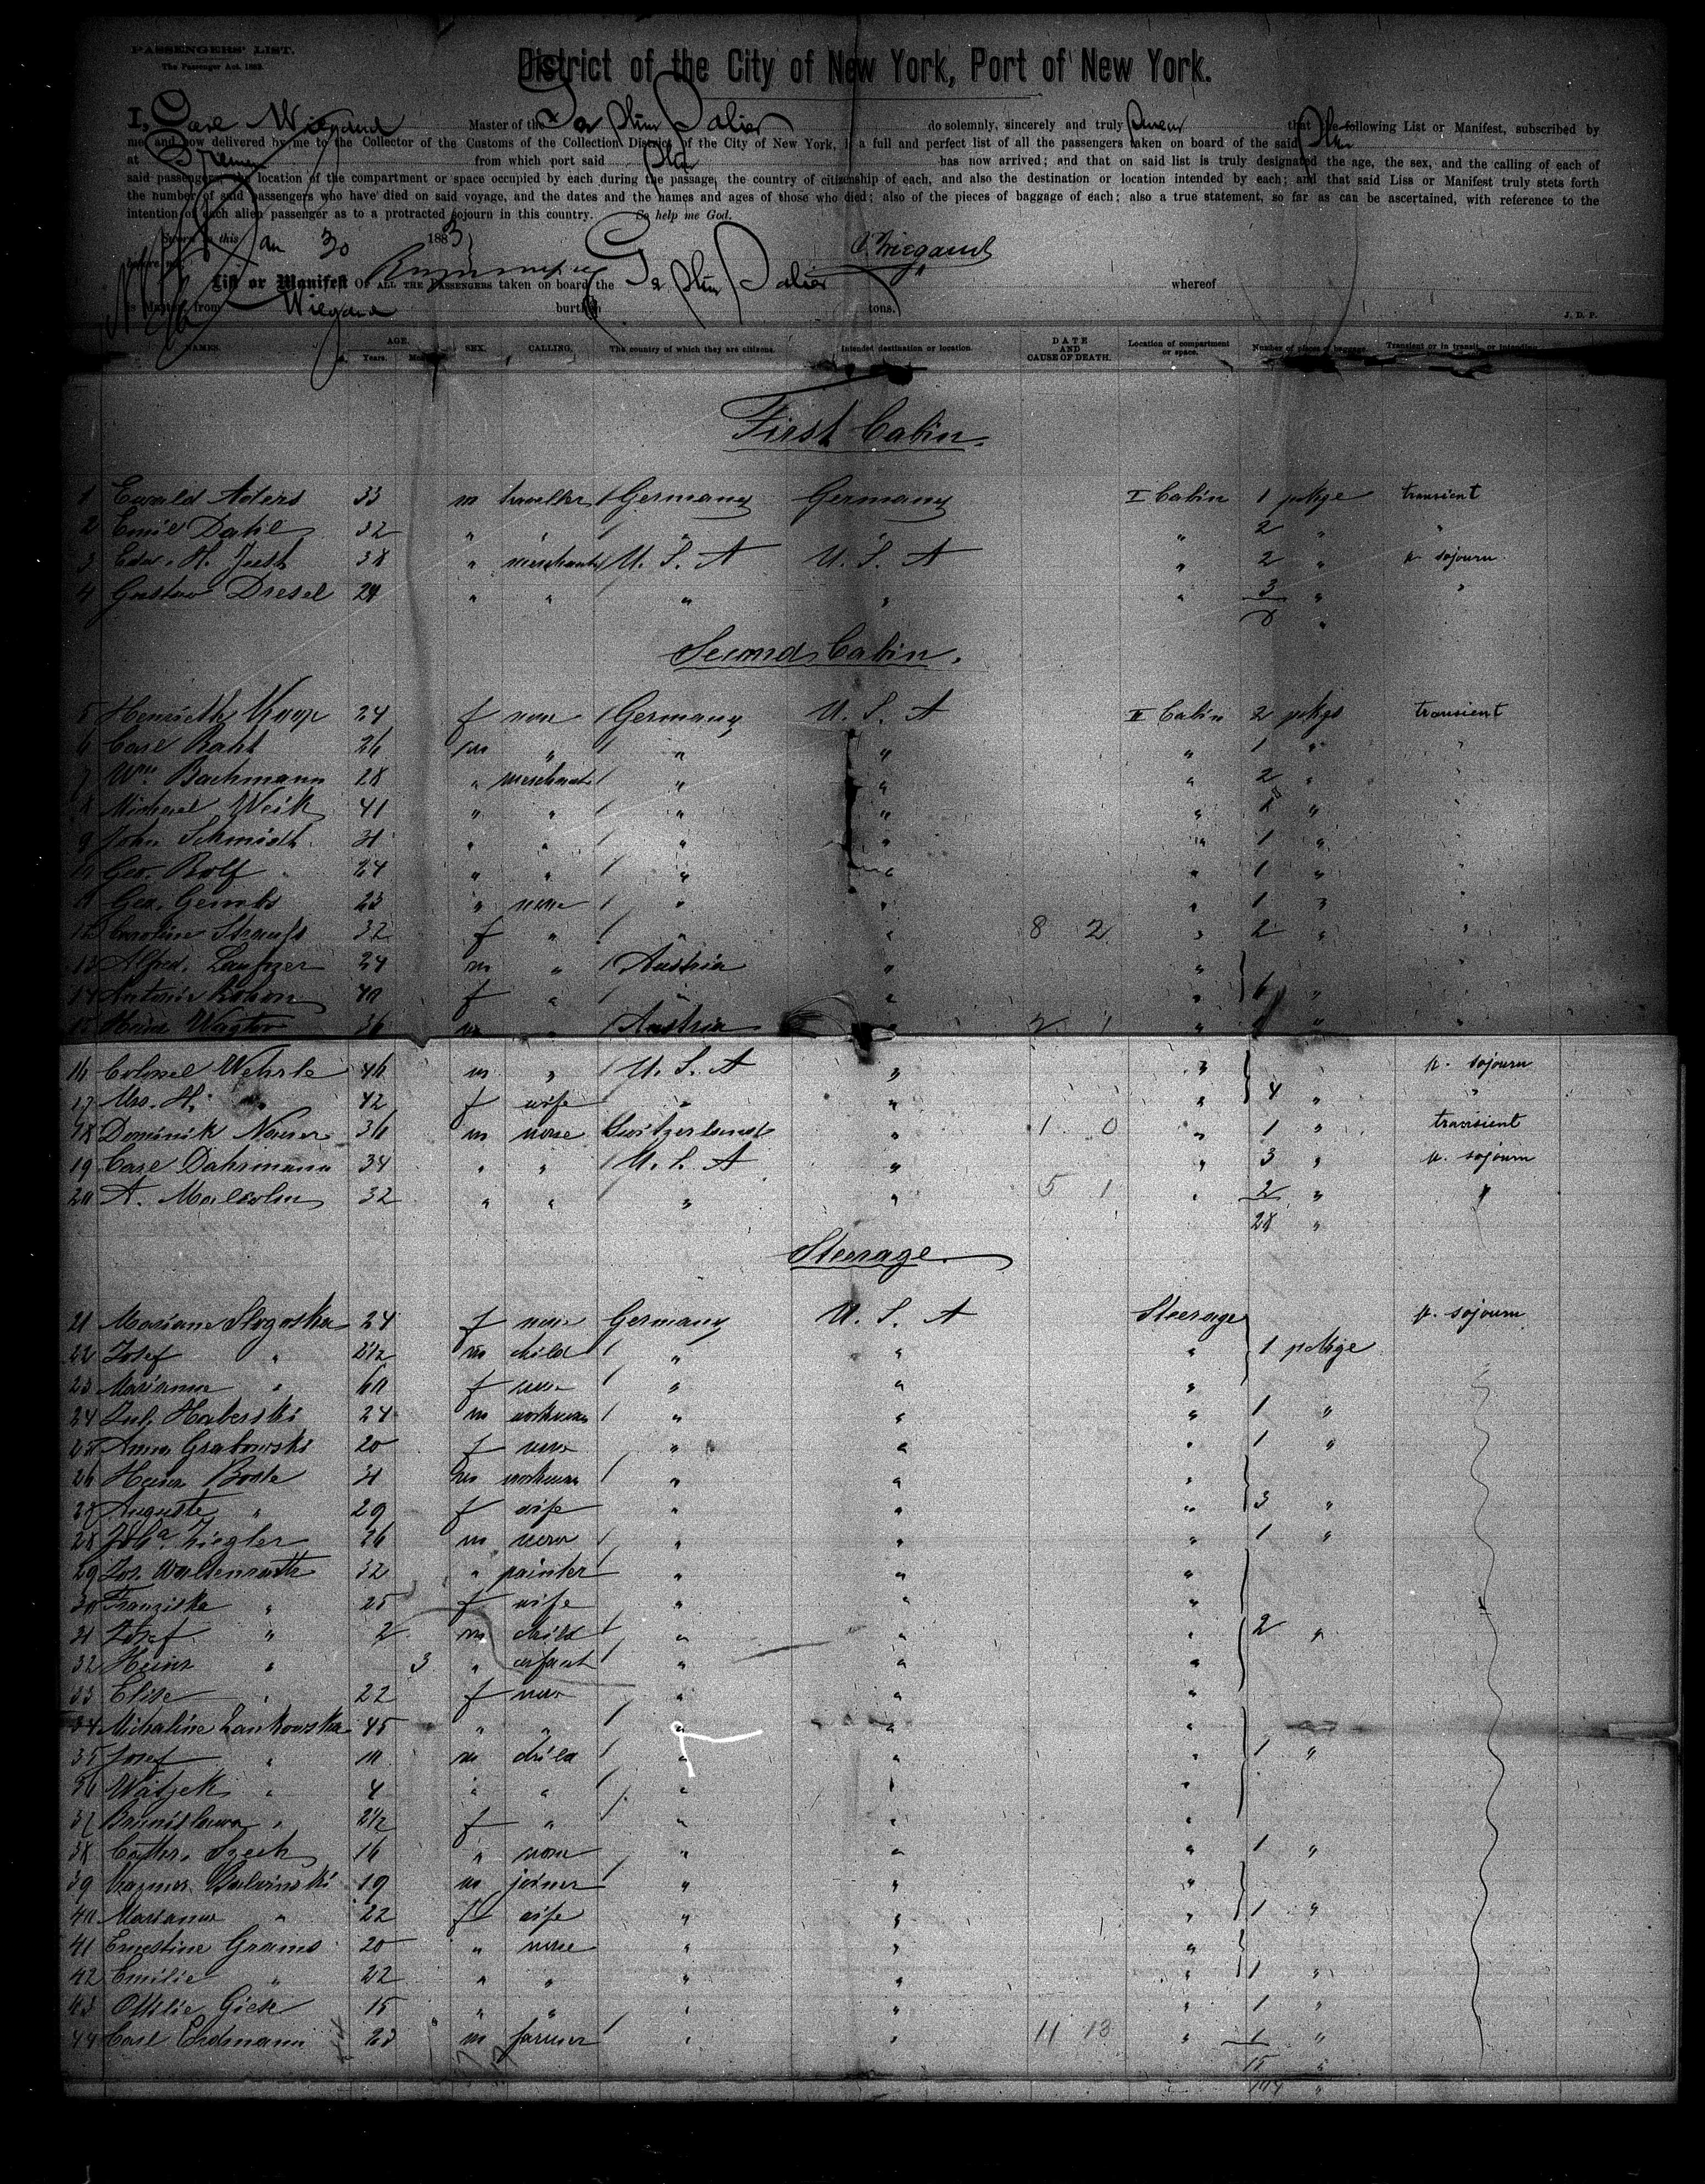 PASSENGERS' LIST.
The Passenger Act, 1882.
District of the City of New York, Port of New York.
I, Carl Wiegand Master of the Salier do solemnly, sincerely and truly swear that the following List or Manifest, subscribed by
me, and now delivered by me to the Collector of the Customs of the Collection District of the City of New York, is a full and perfect list of all the passengers taken on board of the said
at Bremen from which port said has now arrived; and that on said list is truly designated the age, the sex, and the calling of each of
said passengers, the location of the compartment or space occupied by each during the passage, the country of citizenship of each, and also the destination or location intended by each; and that said Liss or Manifest truly stets forth
the number of said passengers who have died on said voyage, and the dates and the names and ages of those who died; also of the pieces of baggage of each; also a true statement, so far as can be ascertained, with reference to the
intention of each alien passenger as to a protracted sojourn in this country. So help me God.
Sworn to this Jan 30 1883
before me C. Wiegand
List or Manifest OF ALL THE PASSENGERS taken on board the Salier whereof
is Master, from Wiegand burthen tons.
J. D. P.
NAMES. AGE. Years. SEX. CALLING. The country of which they are citizens. Intended destination or location. DATE AND CAUSE OF DEATH. Location of compartment or space. Number of pieces of baggage. Transient or in transit, or intending
First Cabin.
1 Ewald Aders 33 m traveller Germany Germany I Cabin 1 pkge transient
2 Emil Dahl 32 " " " " 2 " "
3 Edw. H. Just 38 " merchant U. S. A U. S. A " 2 " p. sojourn
4 Gustav Dresel 29 " " " " " 3 " "
8 "
Second Cabin.
5 Henriette Koop 24 f none Germany U. S. A II Cabin 2 pkgs transient
6 Carl Raht 26 m " " " " 1 " "
7 Wm. Bachmann 28 " merchant " " " 2 " "
8 Michael Weik 41 " " " " " 1 "
9 John Schmidt 31 " " " " " 1 "
10 Geo. Rolf 24 " " " " " 1 " "
11 Geo. Gembs 23 " none " " " 1 " "
12 Caroline Strauss 32 f " " " 8 2 " 2 " "
13 Alfred. 24 m " Austria " " "
14 Antonie 40 f " " " " 6 "
15 Heinr. 36 m " Austria " 2 1 " " "
16 Colonel Wehrle 46 m " U. S. A " " p. sojourn
17 Mrs. H. " 42 f wife " " " 4 " "
18 Dominik 36 m none Switzerland " 1 0 " 1 " transient
19 Carl Dahrmann 34 " " U. S. A " " 3 " p. sojourn
20 A. Malcolm 32 " " " " 5 1 " 2 " "
28 "
Steerage
21 Mariane 24 f none Germany U. S. A Steerage p. sojourn
22 Josef " 2 1/2 m child " " " 1 pkge
23 Marianne " 60 f none " " "
24 Jul. Haberski 24 m workman " " " 1 "
25 Anna Grabowski 20 f none " " " 1 "
26 Heinr. Bode 31 m workman " " "
27 Auguste " 29 f wife " " " 3 "
28 Ziegler 26 m none " " " 1 "
29 Jos. Waltenrath 32 " painter " " "
30 Franziska " 25 f wife " " "
31 Josef " 2 m child " " " 2 "
32 Heinr. " 3 " infant " " "
33 Elise " 22 f none " " "
34 Michaline Zankowska 45 " " " " "
35 Josef " 10 m child " " " 1 "
36 " 4 " " " "
37 Bronislawa " 2 1/2 f " " " "
38 Cathr. 16 " none " " " 1 "
39 19 m joiner " " "
40 Marianne " 22 f wife " " " 1 "
41 Ernestine Grams 20 " none " " "
42 Emilie " 22 " " " " " 1 "
43 Ottilie Giese 15 " " " " " 1 "
44 Carl Erdmann 23 m farmer " " 11 13 " 1 "
15 "